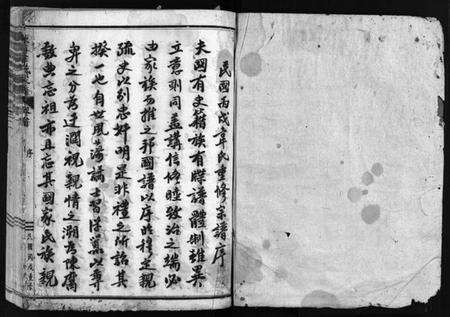 民國丙戌韋氏重修宗譜序
夫國有史籍族有牒譜體制雖異
立意則同蓋講信修睦致治之端必
由家族而推之邦國譜以序昭穆定親
疏史以別忠奸明是非禮之所詒其
揆一也自世風澆論士習情萬以尊
卑之分為迂濶視親情之溯為陳腐
數典忘祖亦且忘其國家民族親
序